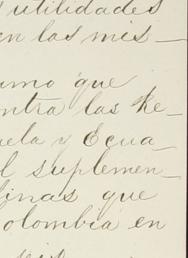 utilidades
en las mis-
umo que
ontra las Re-
uela y Ecua-
l suplemen-
linas que
olombia en